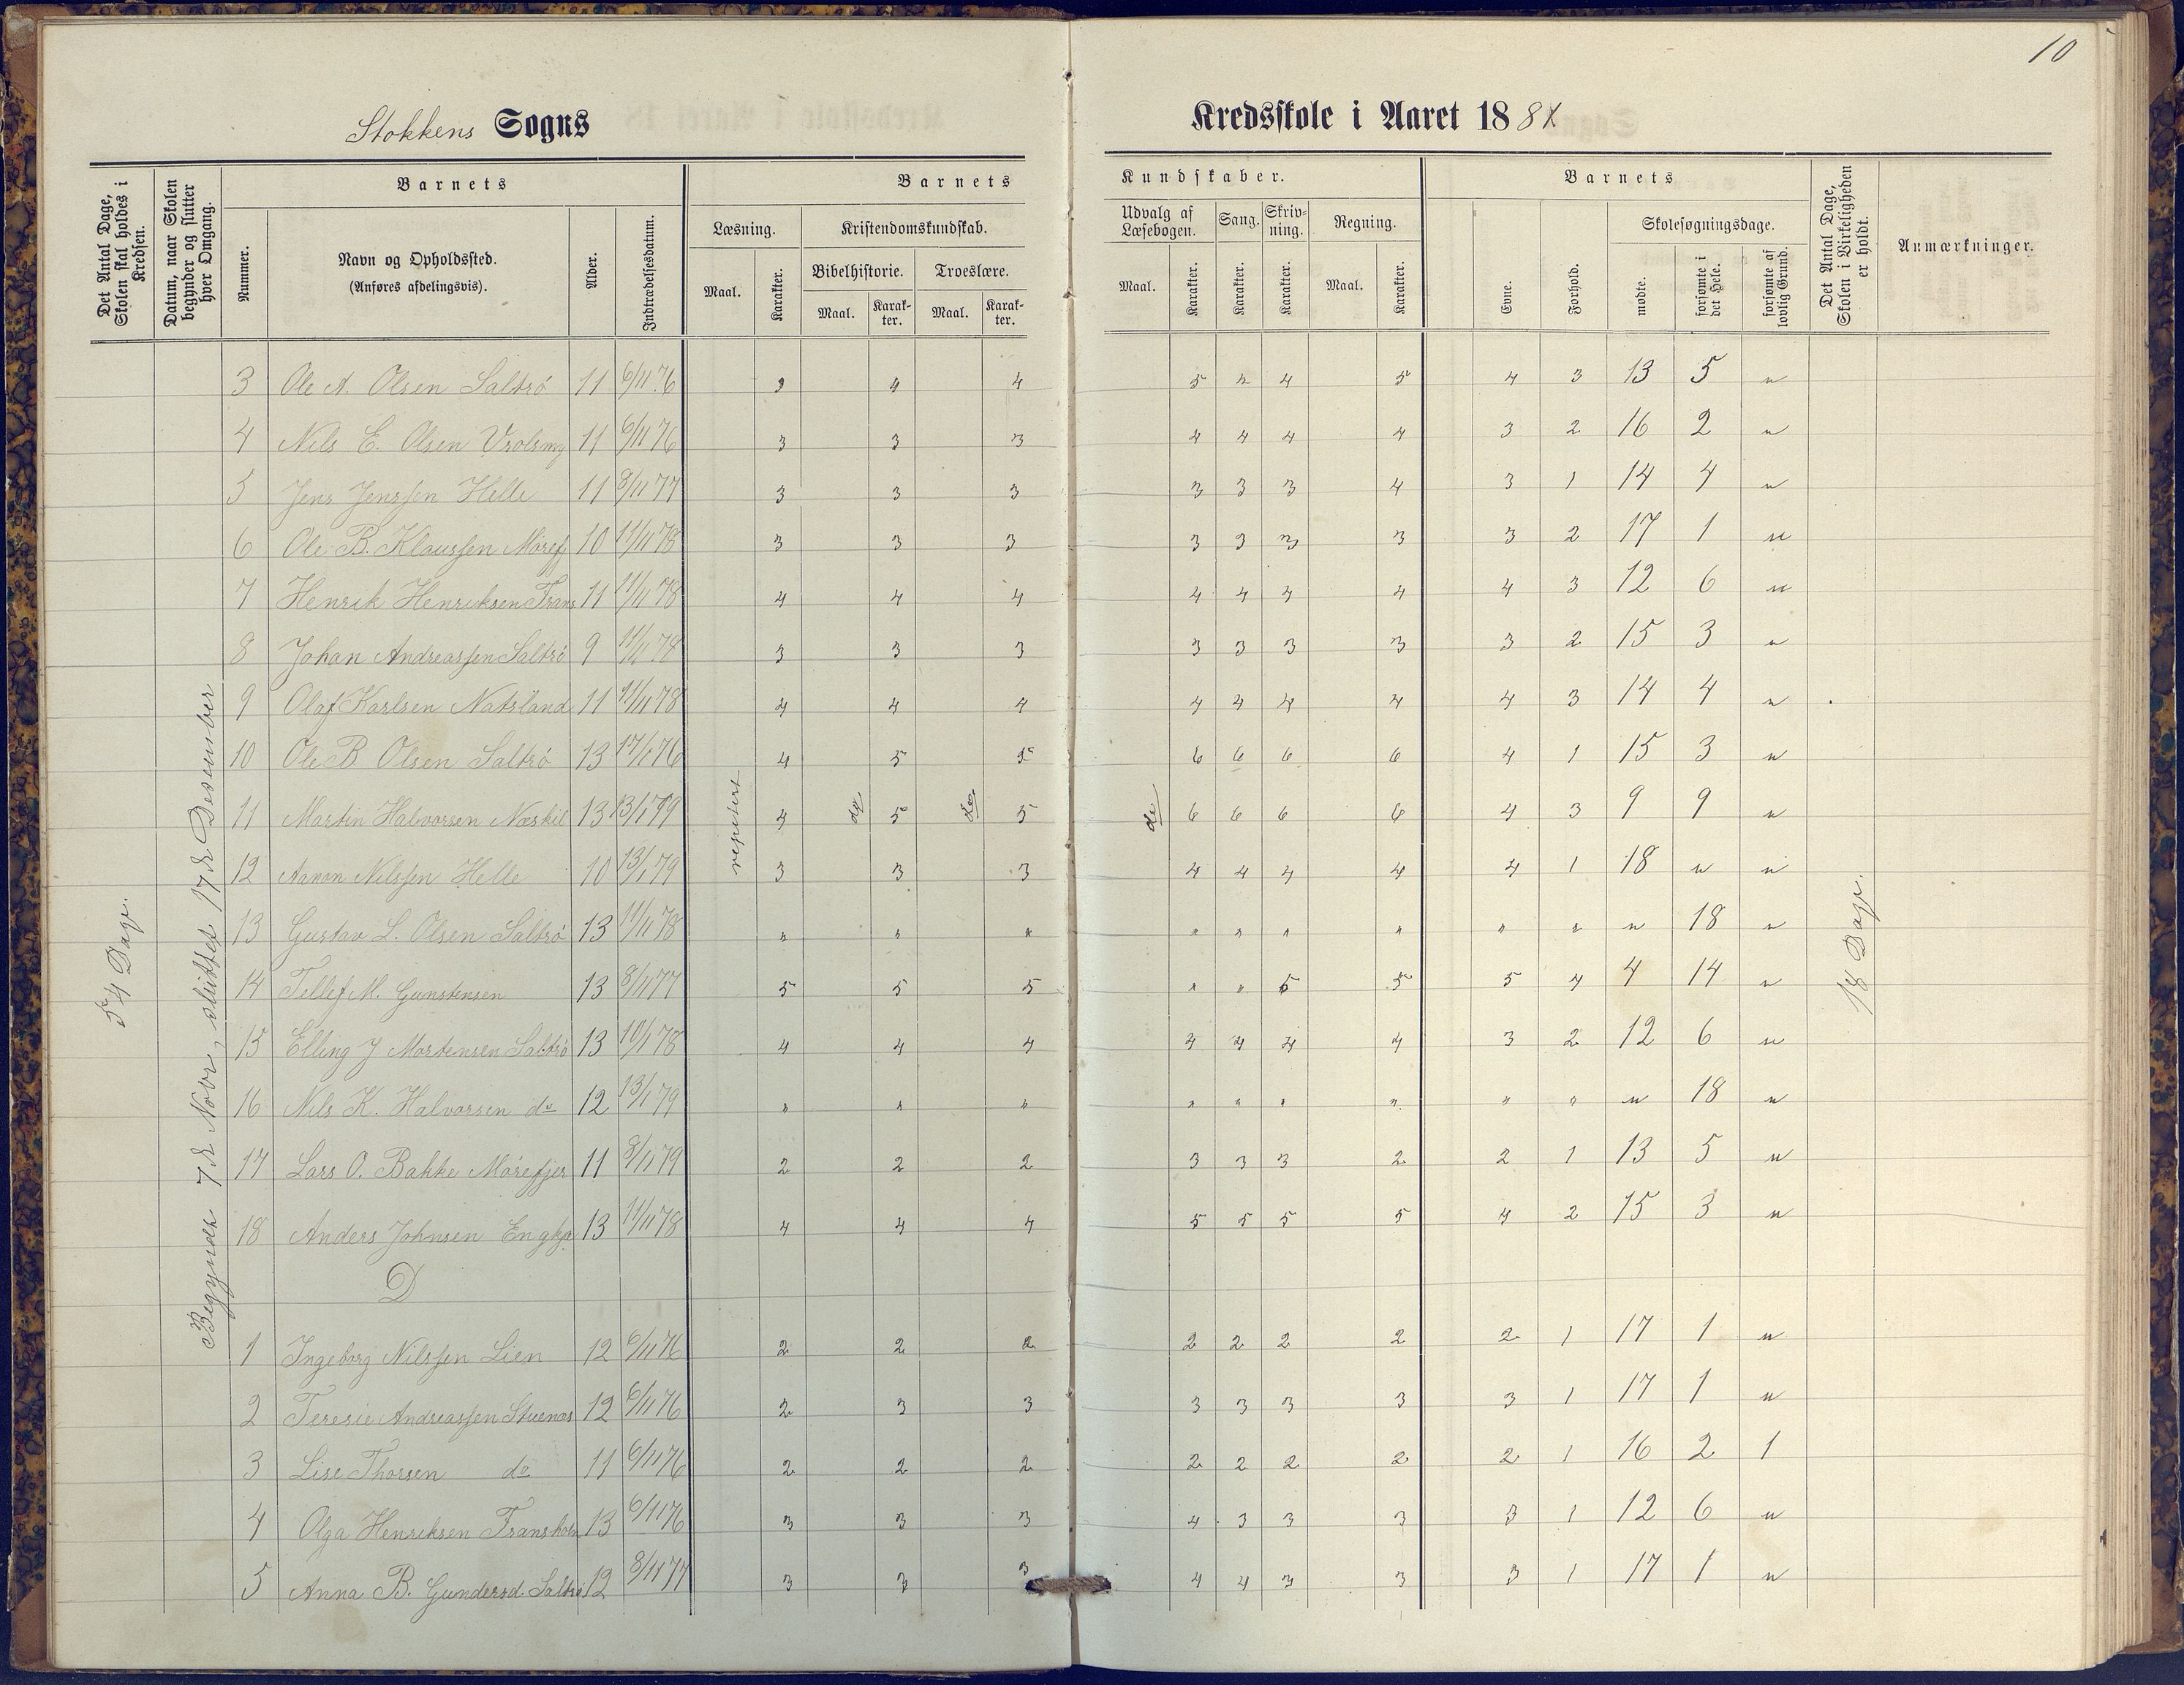 10
Stokkens Sogns
Kredsskole i Aaret 188
Det Antal Dage, Skolen skal holdes i Kredsen.
Datum, naar Skolen begynder og slutter hver Omgang.
Barnets
Nummer.
Navn og Opholdssted.
(Anføres afdelingsvis).
Alder.
Indtrædelsesdatum.
Barnets
Læsning.
Maal.
Karakter.
Kristendomskundskab.
Bibelhistorie.
Maal.
Karak-
ter.
Troeslære.
Maal.
Karak-
ter.
Kundskaber.
Udvalg af
Læsebogen.
Maal.
Karakter.
Sang.
Karakter.
Skriv-
ning.
Karakter.
Regning.
Maal.
Karakter.
Barnets
Evne.
Forhold.
Skolesøgningsdage.
mødte.
forsømte i det Hele.
forsømte af lovlig Grund.
Det Antal Dage, Skolen i Virkeligheden er holdt.
Anmærkninger.
54 Dage.
Begyndt 7de Novr, sluttet 17de Desember
repetert
do
do
do
18 Dage.
3 Ole A. Olsen Saltrö 11 6/11 76 4 4 5 4 5 4 3 13 5 "
4 Nils E. Olsen 11 6/11 76 3 3 3 4 4 4 4 3 2 16 2 "
5 Jens Jenssen Helle 11 8/11 77 3 3 3 3 3 3 4 3 1 14 4 "
6 Ole B. Klaussen Möref 10 11/11 78 3 3 3 3 3 3 3 3 2 17 1 "
7 Henrik Henriksen Frans 11 11/11 78 4 4 4 4 4 4 4 4 3 12 6 "
8 Johan Andreassen Saltrö 9 11/11 78 3 3 3 3 3 3 3 3 2 15 3 "
9 Olaf Karlsen Natsland 11 11/11 78 4 4 4 4 4 4 4 4 3 14 4 "
10 Ole B Olsen Saltrö 13 17/1 76 4 5 5 6 6 6 6 4 1 15 3 "
11 Martin Halvorsen Næskil 13 13/1 79 4 5 5 6 6 6 6 4 3 9 9 "
12 Aanon Nilssen Helle 10 13/1 79 3 3 3 4 4 4 4 4 1 18 " "
13 Gustav L. Olsen Saltrö 13 11/11 78 " " " " " " " " " " 18 "
14 Tellef M. Gunstensen 13 8/11 77 5 5 5 " " 5 5 5 4 4 14 "
15 Elling J Mortensen Saltrö 13 10/1 78 4 4 4 4 4 4 4 3 2 12 6 "
16 Nils K. Halvorsen do 12 13/1 79 " " " " " " " " " " 18 "
17 Lars O. Bakke Mörefjer 11 8/11 79 2 2 2 3 3 3 2 2 1 13 5 "
18 Anders Johnsen Engkjæ 13 11/11 78 4 4 4 5 5 5 5 4 2 15 3 "
D
1 Ingeborg Nilssen Lien 12 6/11 76 2 2 2 2 2 2 2 2 1 17 1 "
2 Teresie Andreassen Stuenæs 12 6/11 76 2 3 3 3 3 3 3 3 1 17 1 "
3 Lise Thorsen do 11 6/11 76 2 2 2 2 2 2 2 2 1 16 2 1
4 Olga Henriksen Fransholm 13 6/11 76 3 3 3 4 3 3 3 3 1 12 6 "
5 Anna B. Gundersd. Saltrö 12 8/11 77 3 3 3 4 4 3 3 3 1 17 1 "